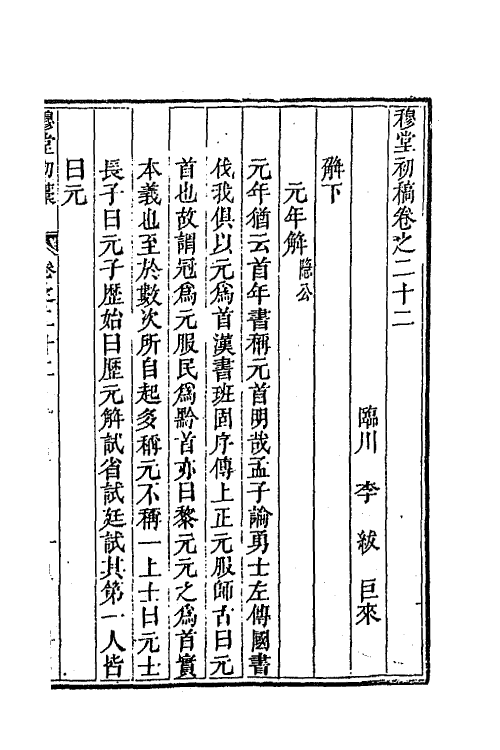 穆堂初稿卷之二十二
臨川 李 紱 巨來
解下
元年解隱公
元年猶云首年書稱元首明哉孟子論勇士左傳國書
伐我俱以元爲首漢書班固序傳上正元服師古曰元
首也故謂冠爲元服民爲黔首亦曰黎元元之爲首實
本義也至於數次所自起多稱元不稱一上士曰元士
長子曰元子歷始曰歷元解試省試廷試其第一人皆
曰元
穆堂初稾 卷之二十二